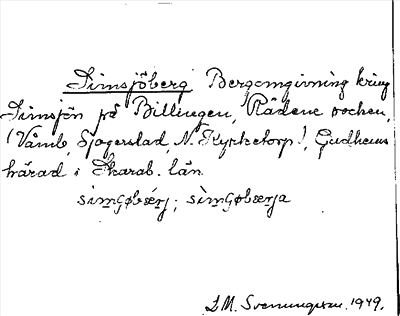 Simsjöberg Bergomgivning kring
Simsjön på Billingen, Rådene socken,
(Våmb, Sjogerstad, N. Kyrketorp!), Gudhems
härad i Skarab. län.
sìmʃøbærj; sìmʃøbærja
L.M. Svenungsson. 1949.